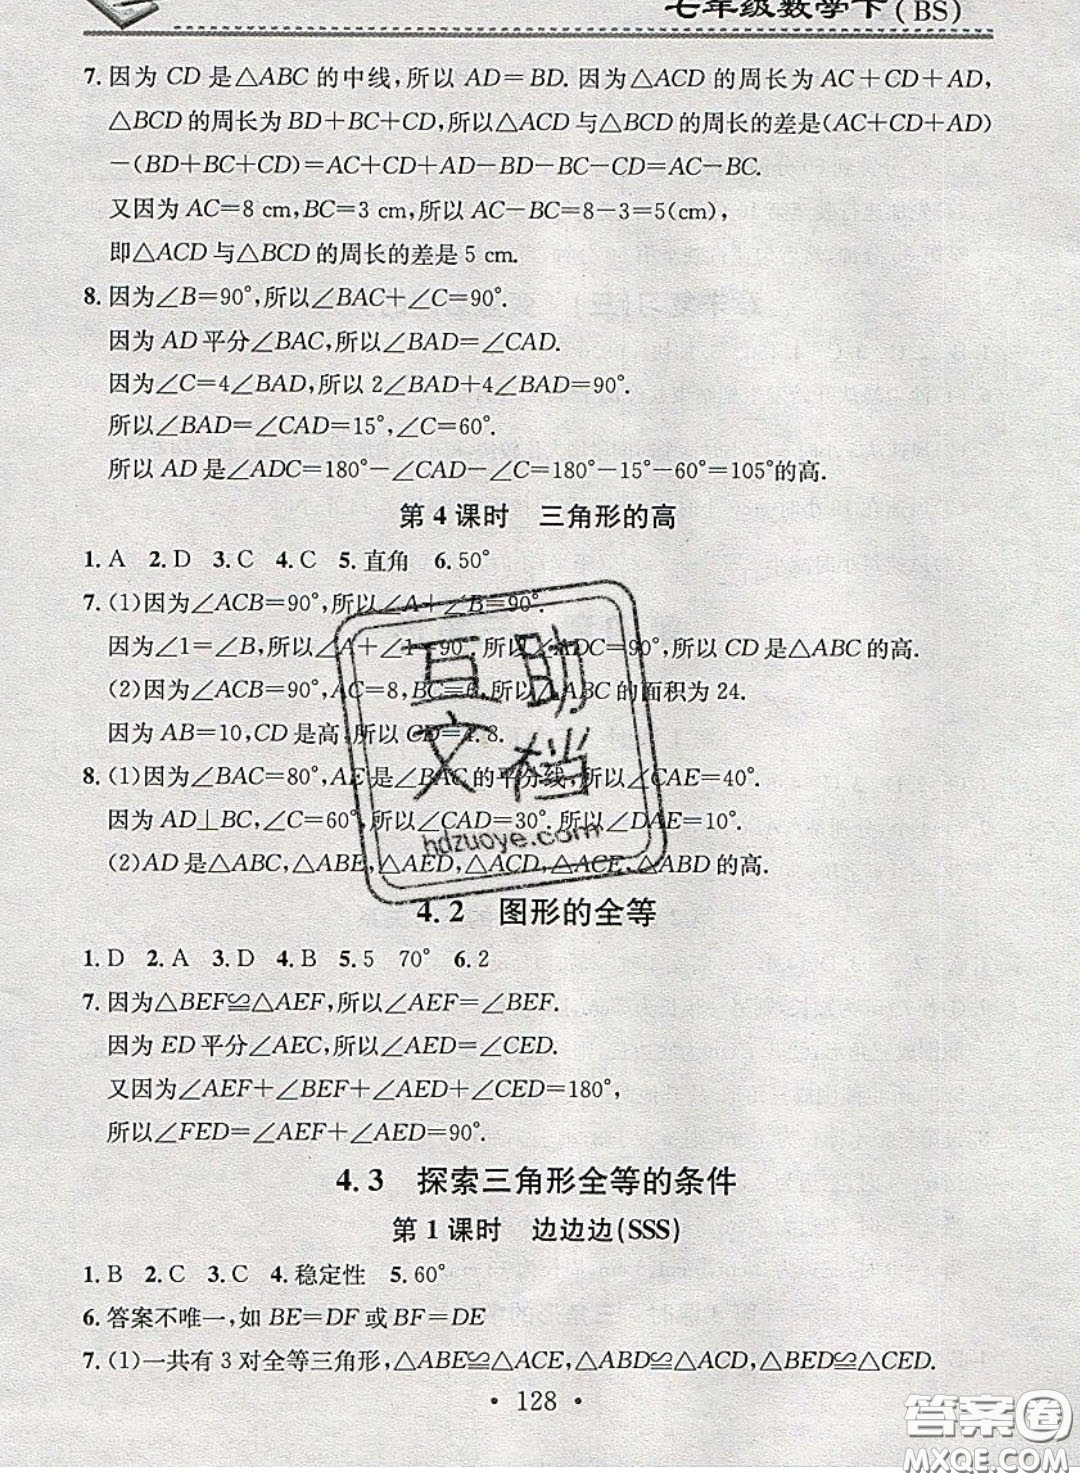 七年级数学下(BS)
7. 因为 CD 是△ABC 的中线,所以 AD=BD. 因为△ACD 的周长为 AC+CD+AD,
△BCD 的周长为 BD+BC+CD,所以△ACD 与△BCD 的周长的差是(AC+CD+AD)
-(BD+BC+CD)=AC+CD+AD-BD-BC-CD=AC-BC.
又因为 AC=8 cm,BC=3 cm,所以 AC-BC=8-3=5(cm),
即△ACD 与△BCD 的周长的差是 5 cm.
8. 因为∠B=90°,所以∠BAC+∠C=90°.
因为 AD 平分∠BAC,所以∠BAD=∠CAD.
因为∠C=4∠BAD,所以 2∠BAD+4∠BAD=90°.
所以∠BAD=∠CAD=15°,∠C=60°.
所以 AD 是∠ADC=180°-∠CAD-∠C=180°-15°-60°=105°的高.
第 4 课时 三角形的高
1. A 2. D 3. C 4. C 5. 直角 6. 50°
7. (1)因为∠ACB=90°,所以∠A+∠B=90°.
因为∠1=∠B,所以∠A+∠1=90°.所以∠ADC=90°,所以 CD 是△ABC 的高.
(2)因为∠ACB=90°,AC=8,BC=6,所以△ABC 的面积为 24.
因为 AB=10,CD 是高,所以 CD=4.8.
8. (1)因为∠BAC=80°,AE 是∠BAC 的平分线,所以∠CAE=40°.
因为 AD⊥BC,∠C=60°,所以∠CAD=30°.所以∠DAE=10°.
(2)AD 是△ABC,△ABE,△AED,△ACD,△ACE,△ABD 的高.
互助
文档
hdzuoye.com
4.2 图形的全等
1. D 2. A 3. D 4. B 5. 5 70° 6. 2
7. 因为△BEF≌△AEF,所以∠AEF=∠BEF.
因为 ED 平分∠AEC,所以∠AED=∠CED.
又因为∠AEF+∠BEF+∠AED+∠CED=180°,
所以∠FED=∠AEF+∠AED=90°.
4.3 探索三角形全等的条件
第 1 课时 边边边(SSS)
1. B 2. C 3. C 4. 稳定性 5. 60°
6. 答案不唯一,如 BE=DF 或 BF=DE
7. (1)一共有 3 对全等三角形,△ABE≌△ACE,△ABD≌△ACD,△BED≌△CED.
· 128 ·
答案圈
MXQE.COM